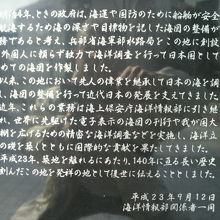 明治4年、ときの政府は、海運や国防のために船舶が安全に航
海するための海の深さや目標物を記した海図の整備が
特であると考え、兵部省海軍部水路局をこの地に創設
外国人に頼らず独力で海洋調査を行って日本国として
めての海図を作りました。
以来、この地において先人の偉業を継承して日本の海を調
海図の整備を行って近代日本の発展を支えてきました。
近年、これらの業務は海上保安庁海洋情報部に引き継が
れ、世界に先駆けた電子表示の海図の刊行や我が国大
棚を広げるための精密な海洋調査などを実施し、海洋立
の礎を築くとともに国際的な貢献を果たしてきました。
平成23年、築地を離れるにあたり、140年に亘る長い歴史
刻んだこの地を発祥の地として後世に伝えることとしました。
平成23年9月12日
海洋情報部関係者一同